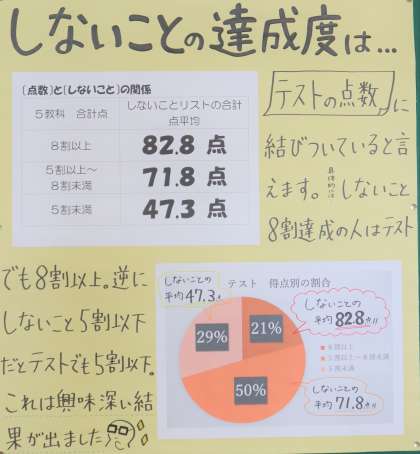 しないことの達成度は…
[点数]と[しないこと]の関係
５教科 合計点
しないことリストの合計点平均
8割以上
82.8 点
5割以上〜
8割未満
71.8 点
5割未満
47.3 点
テストの点数に
結びついていると言
えます。具体的にはしないこと
8割達成の人はテスト
でも8割以上。逆に
しないこと5割以下
だとテストでも5割以下。
これは興味深い結
果が出ました
テスト 得点別の割合
しないことの
平均47.3点
しないことの
平均82.8点!!
29%
21%
50%
8割以上
5割以上〜8割未満
5割未満
しないことの
平均71.8点!!